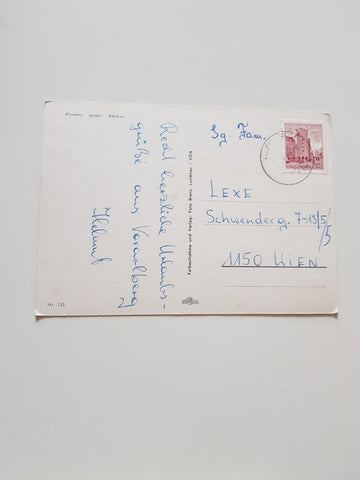 Bludenz gegen Rätikon
Recht herzliche Urlaubs-
grüße aus Vorarlberg
Helmut
Nr. 125
Farbaufnahme und Verlag: Foto Branz, Lustenau / VGA
Sg. Fam.
LEXE
Schwenderg. 7-13/5/
/5
1150 WIEN